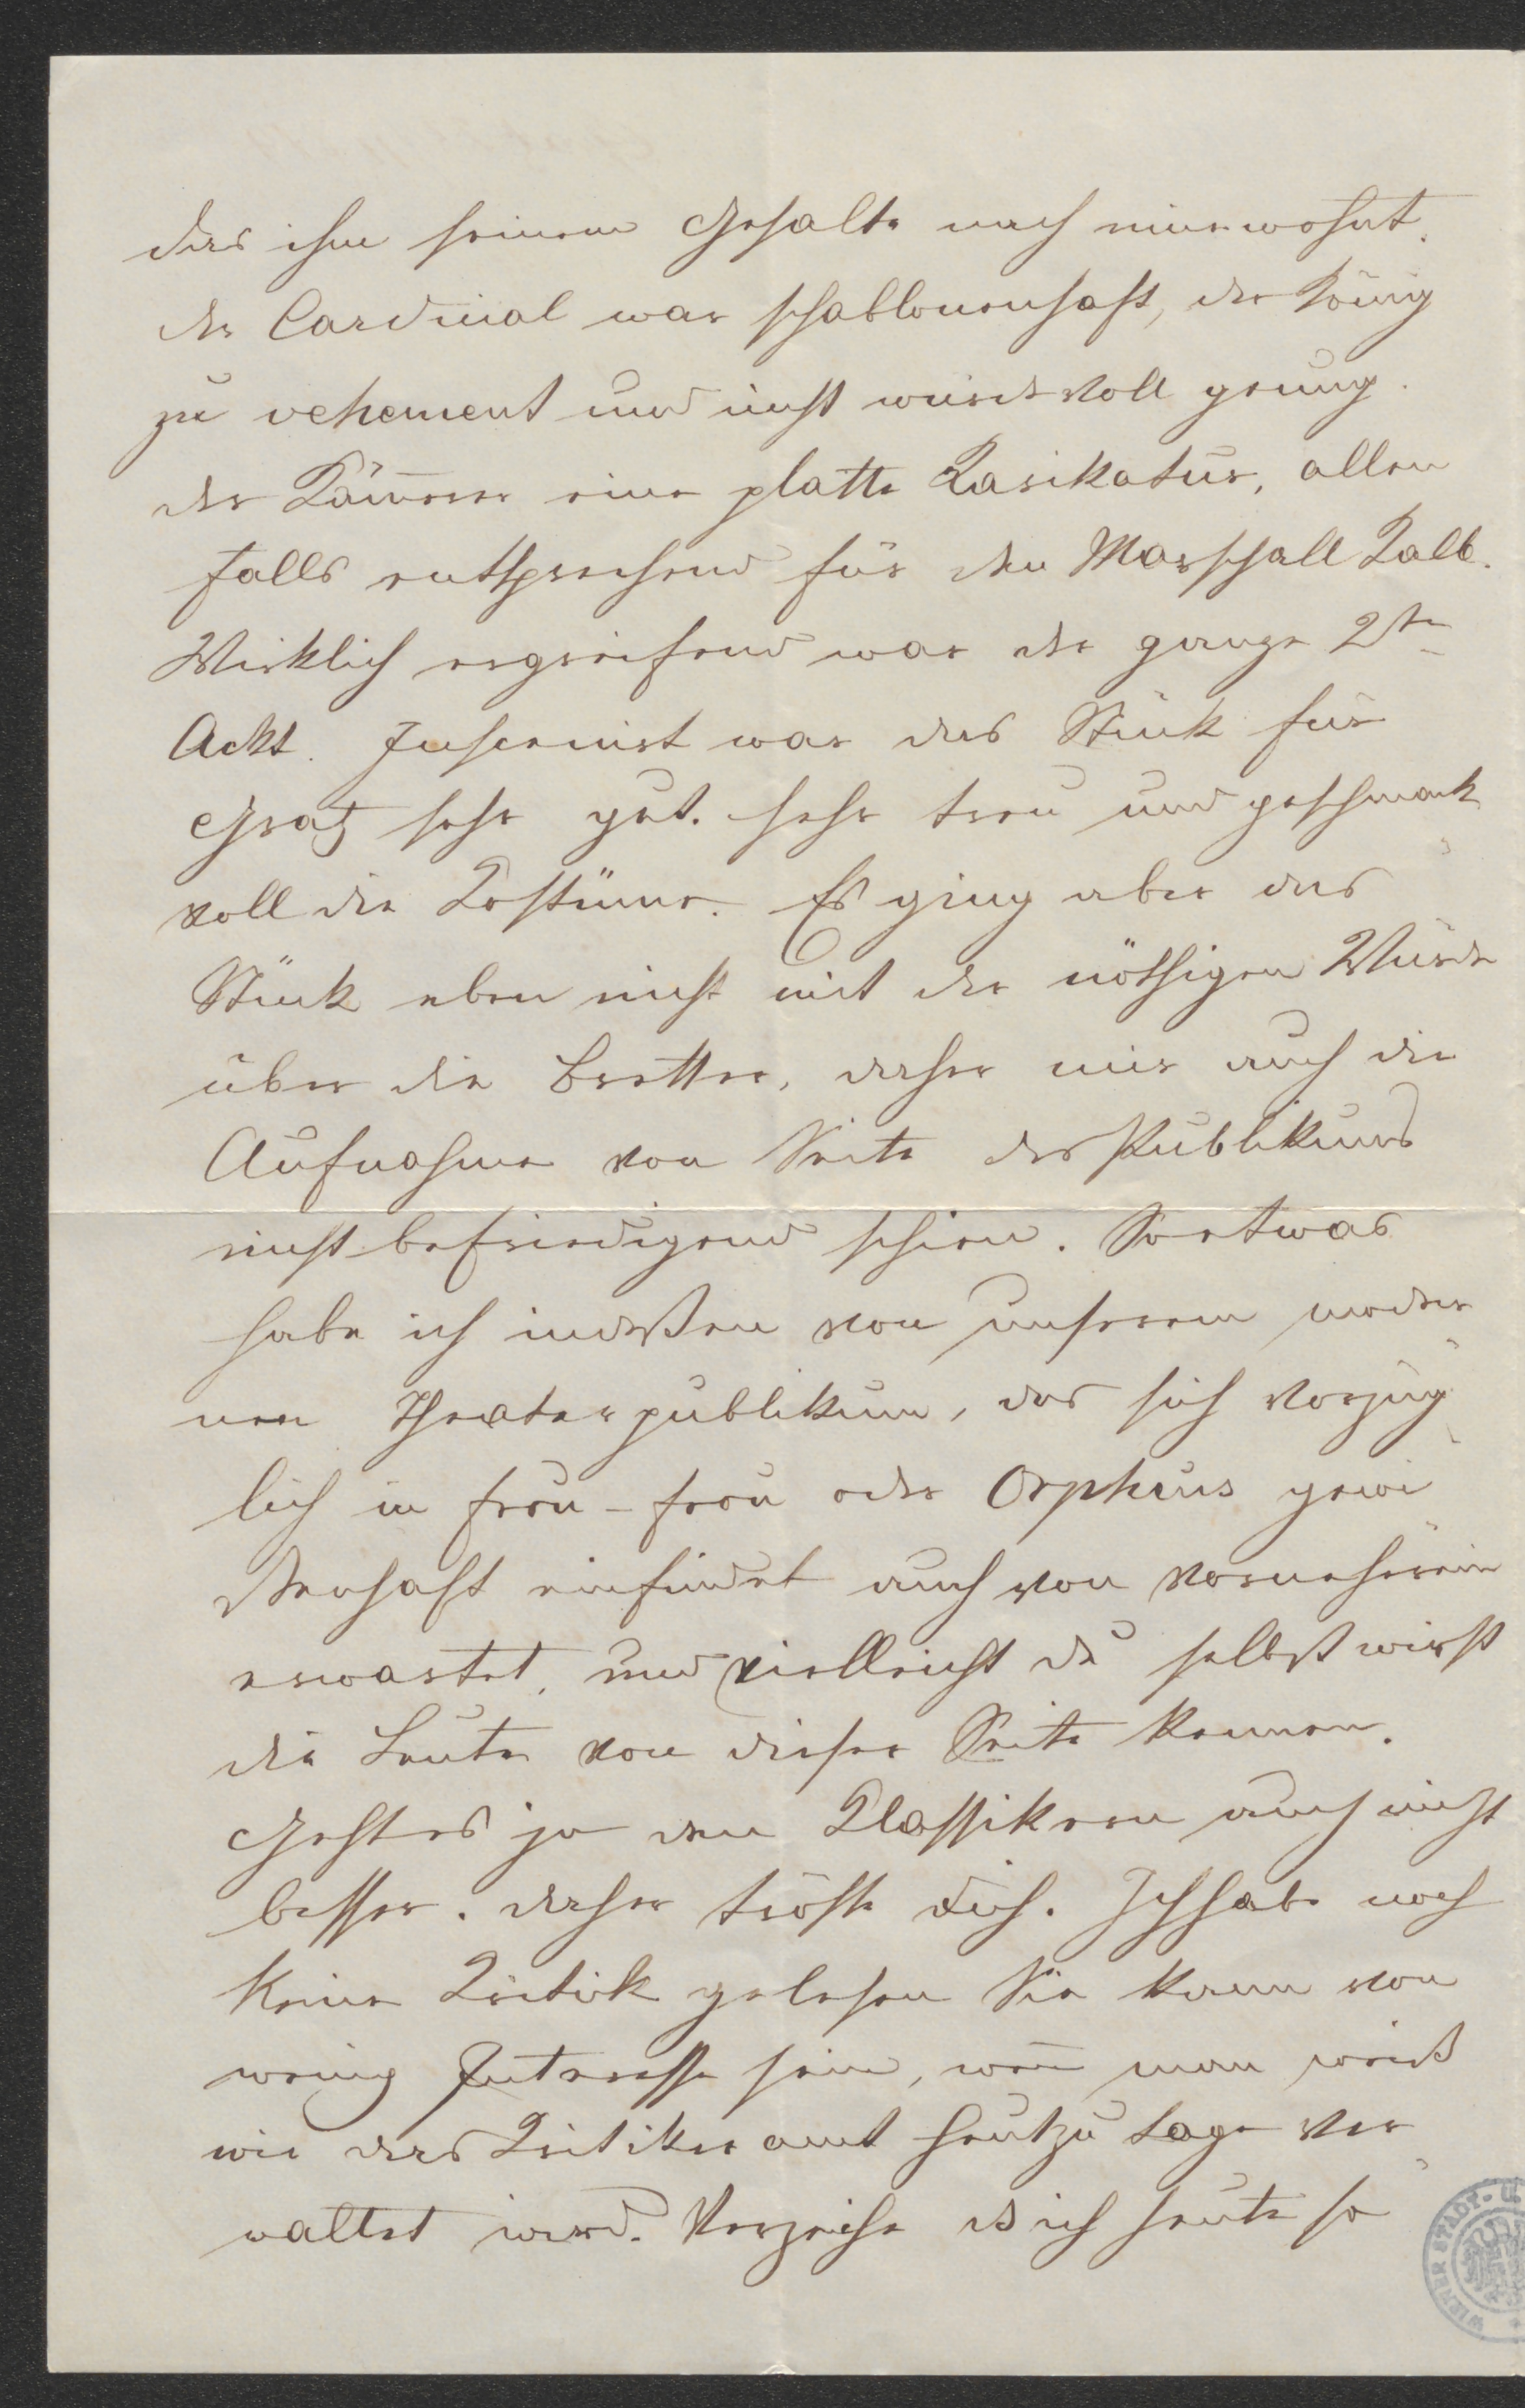 das ihm seinem Gehalte nach innewohnt.
der Cardinal war schablonenhaft, der König
zu vehement und nicht würdevoll genug.
der Kämerer eine platte Karikatur, allen
falls entsprechend für den Marschall Kalb.
Wirklich ergreifend war der ganze 2te
Ackt. Inscenirt war das Stück für
Gratz sehr gut. sehr treu und geschmack
voll die Kostüme. Es ging aber das
Stück eben nicht mit der nöthigen Würde
über die Bretter, daher mir auch die
Aufnahme von Seite des Publikums
nicht befriedigend schien. So etwas
habe ich indeßen von unserem moder
nen Theaterpublikum, das sich vorzüg
lich in frou-frou oder Orpheus gewi
ßenhaft einfindet auch von vorneherein
erwartet, und vielleicht du selbst wirst
die Leute von dieser Seite kennen.
Geht es ja den Klassikern auch nicht
besser. daher tröste dich. Ich habe noch
keine Kritik gelesen Sie kann von
wenig Interesse sein, weñ man weiß
wie das Kritikeramt heutzu tage ver
waltet wird. Verzeihe daß ich heute so
WIENER STADT-U